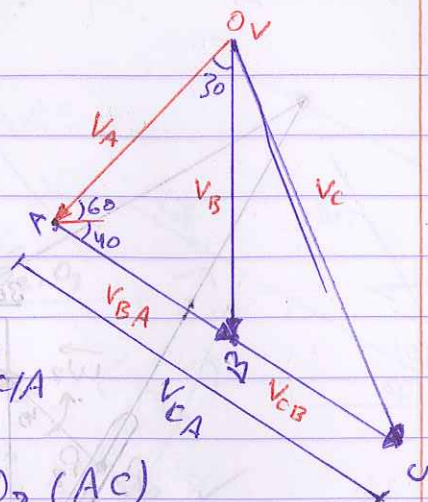 O V
30
V_A
V_B
V_C
A
60
40
V_BA
B
V_CB
C/A
V_CA
C
(AC)